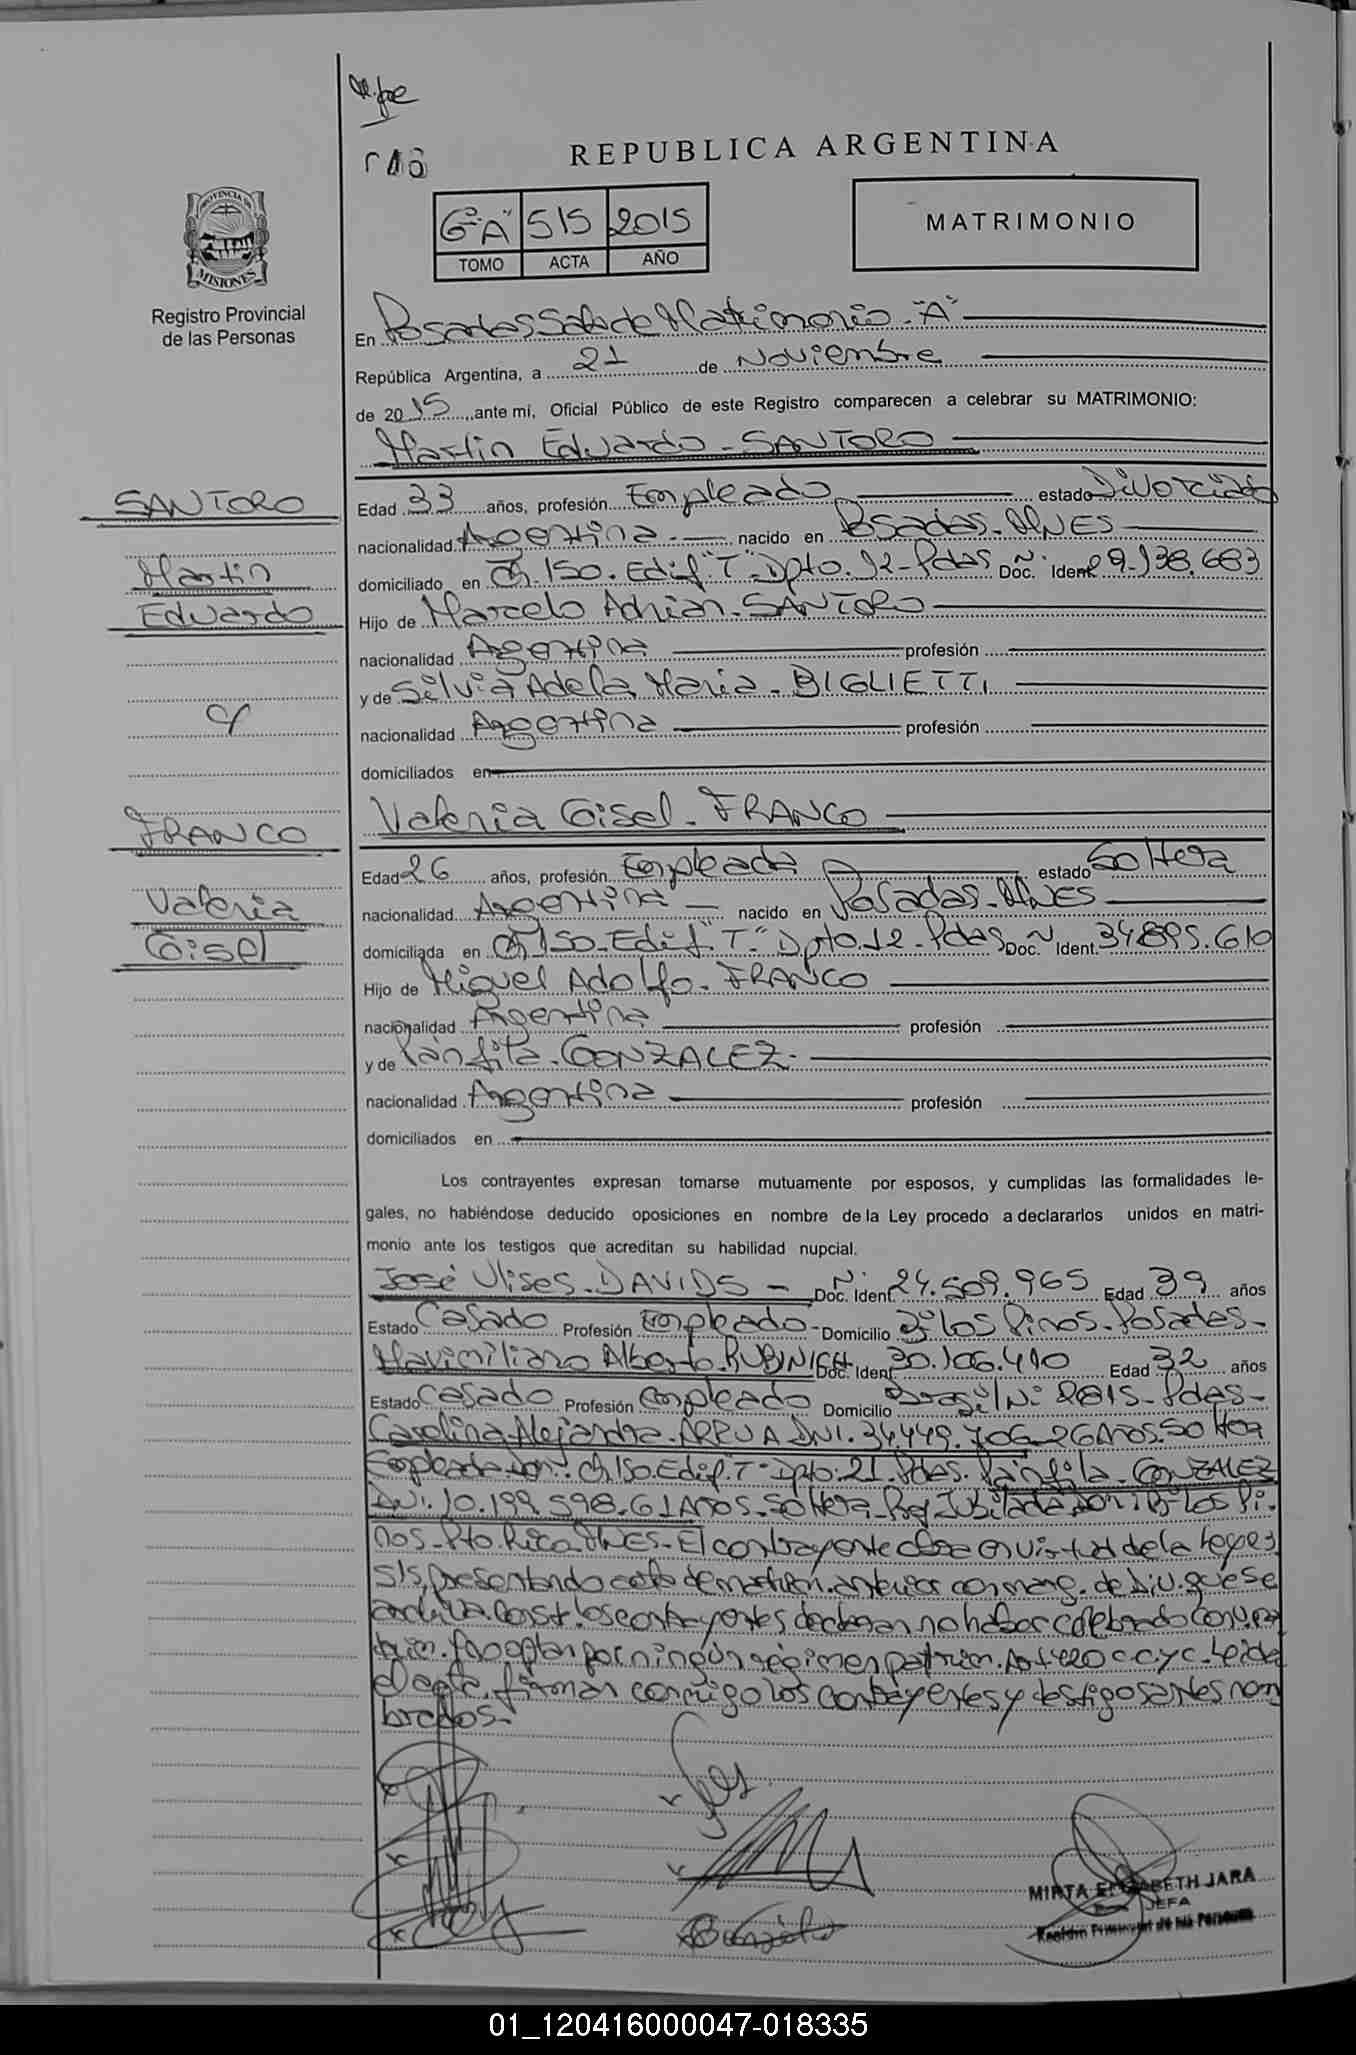 REPUBLICA ARGENTINA
PROVINCIA DE
MISIONES
Registro Provincial
de las Personas
6º "A" 515 2015
TOMO ACTA AÑO
MATRIMONIO
En Posadas Sala de Matrimonio - "A"
República Argentina, a 21 de Noviembre
de 2015, ante mi, Oficial Público de este Registro comparecen a celebrar su MATRIMONIO:
Martin Eduardo - SANTORO
SANTORO
Martin
Eduardo
c/
FRANCO
Valeria
Gisel
Edad 33 años, profesión Empleado estado Divorciado
nacionalidad Argentina nacido en Posadas - MNES
domiciliado en Ch. 150. Edif. "T" Dpto. 12 - Pdas Doc. Ident. Nº 29.138.683
Hijo de Marcelo Adrian - SANTORO
nacionalidad Argentina profesión
y de Silvia Adela Maria - BIGLIETTI
nacionalidad Argentina profesión
domiciliados en
Valeria Gisel - FRANCO
Edad 26 años, profesión Empleada estado Soltera
nacionalidad Argentina nacido en Posadas - MNES
domiciliada en Ch 150 - Edif. "T" Dpto 12 - Pdas Doc. Ident. Nº 34.895.610
Hijo de Miguel Adolfo - FRANCO
nacionalidad Argentina profesión
y de Pánfila - GONZALEZ -
nacionalidad Argentina profesión
domiciliados en
Los contrayentes expresan tomarse mutuamente por esposos, y cumplidas las formalidades le-
gales, no habiéndose deducido oposiciones en nombre de la Ley procedo a declararlos unidos en matri-
monio ante los testigos que acreditan su habilidad nupcial.
José Ulises - DAVIDS - Doc. Ident. Nº 24.509.965 Edad 39 años
Estado Casado Profesión Empleado - Domicilio Bº Los Pinos - Posadas -
Maximiliano Alberto - RUBINICH Doc. Ident. 30.106.410 Edad 32 años
Estado Casado Profesión Empleado Domicilio Brasil Nº 2815 - Pdas -
Carolina Alejandra - ARRUA DNI. 34.449.706 - 26 Años - Soltera
Empleada - Dom. Ch 150. Edif. "T" Dpto. 21. Pdas. Pánfila - GONZALEZ
DNI. 10.199.598 - 61 Años - Soltera - Jubilada - Dom. Bº Los Pi-
nos - Pto. Rico MNES - El contrayente en virtud de la
515, presentando acta de matrim. anterior con marg. de Div. que se
archiva. Const. los contrayentes declaran no haber celebrado Conv.
trim. ni optan por ningún régimen patrim. Art 420 CCyC - Leída
el acta, firman conmigo los contrayentes y testigos antes nom
brados.-
MIRTA ELIZABETH JARA
JEFA
01_120416000047-018335